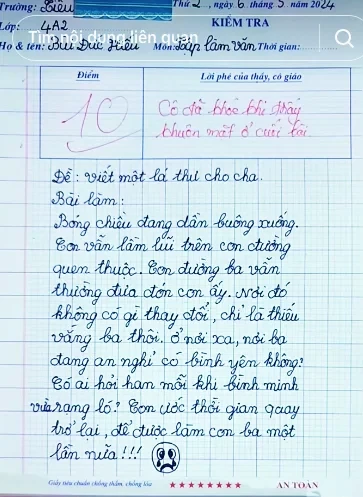 Trường: Tiểu Thứ 2, ngày 6 tháng 5 năm 2024
Lớp: 4A2 KIỂM TRA
Tìm nội dung liên quan
Họ & tên: Bùi Đức Hiếu Môn: Tập làm văn Thời gian:
Điểm Lời phê của thầy, cô giáo
10 Cô đã khóc khi thấy
khuôn mặt ở cuối bài
Đề: viết một lá thư cho cha.
Bài làm:
Bóng chiều đang dần buông xuống.
Con vẫn lầm lũi trên con đường
quen thuộc. Con đường ba vẫn
thường đưa đón con ấy. Nơi đó
không có gì thay đổi, chỉ là thiếu
vắng ba thôi. Ở nơi xa, nơi ba
đang an nghỉ có bình yên không?
Có ai hỏi han mỗi khi bình minh
vừa rạng ló? Con ước thời gian quay
trở lại, để được làm con ba một
lần nữa!!!
Giấy tiêu chuẩn chống thấm, chống lóa ★★★★★★★★ AN TOÀN